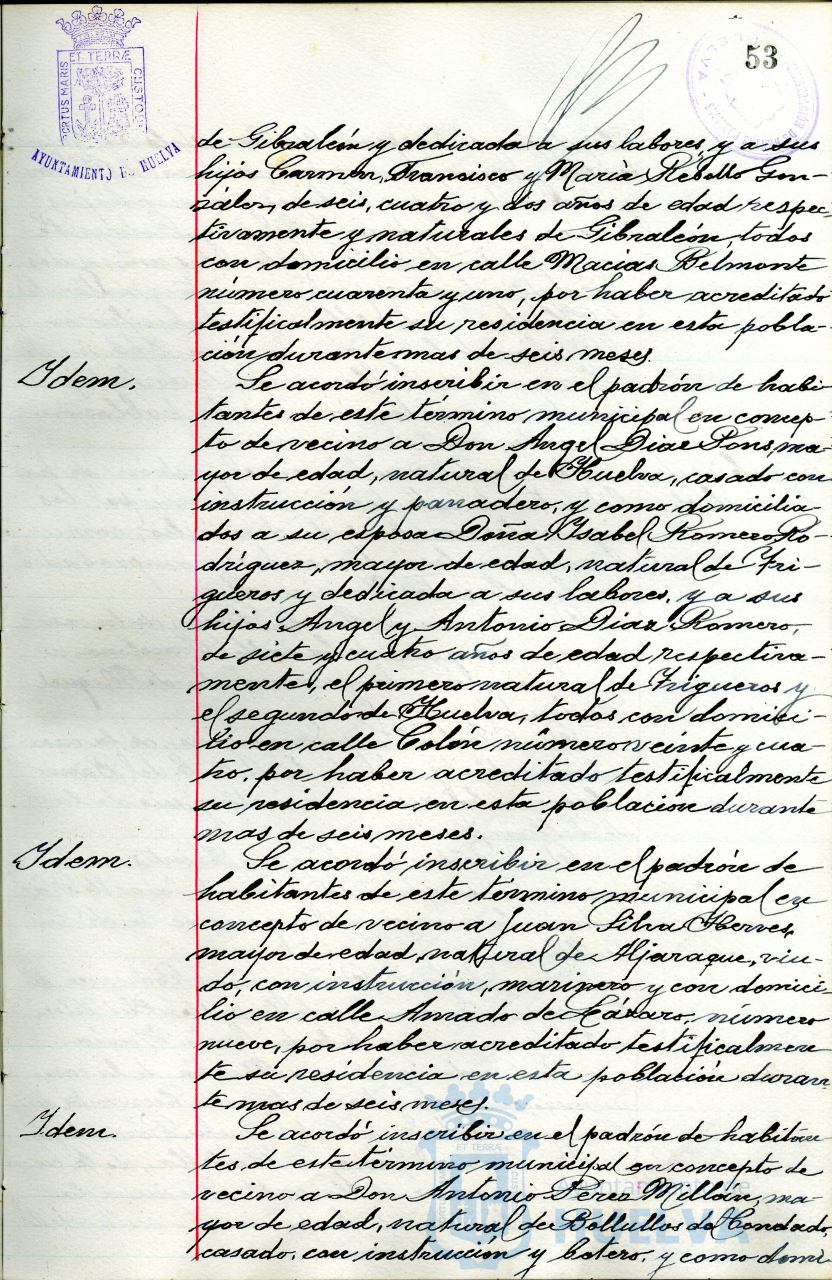 53
PORTUS MARIS ET TERRÆ CUSTODIA
AYUNTAMIENTO DE HUELVA
de Gibraleón y dedicada a sus labores, y a sus
hijos Carmen, Francisco y María Rebollo Gon-
zález, de seis, cuatro y dos años de edad respec-
tivamente y naturales de Gibraleón, todos
con domicilio en calle Macías Belmonte
número cuarenta y uno, por haber acreditado
testificalmente su residencia en esta pobla-
ción durante mas de seis meses.
Idem.
Se acordó inscribir en el padrón de habi-
tantes de este término municipal en concep-
to de vecino a Don Angel Diaz Pons, ma-
yor de edad, natural de Huelva, casado con
instrucción y panadero, y como domicilia-
dos a su esposa Doña Isabel Romero Ro-
dríguez, mayor de edad, natural de Tri-
gueros y dedicada a sus labores, y a sus
hijos Angel y Antonio Diaz Romero,
de siete y cuatro años de edad respectiva-
mente, el primero natural de Trigueros y
el segundo de Huelva, todos con domici-
lio en calle Colón número veinte y cua-
tro, por haber acreditado testificalmente
su residencia en esta población durante
mas de seis meses.
Idem.
Se acordó inscribir en el padrón de
habitantes de este término municipal en
concepto de vecino a Juan Silva Herves,
mayor de edad, natural de Aljaraque, viu-
do, con instrucción, marinero y con domici-
lio en calle Amado de Lázaro, número
nueve, por haber acreditado testificalmen
te su residencia en esta población duran
te mas de seis meses.
Idem.
Se acordó inscribir en el padrón de habitan
tes de este término municipal en concepto de
vecino a Don Antonio Pérez Millán, ma-
yor de edad, natural de Bollullos del Condado,
casado, con instrucción y botero, y como domi
Ayuntamiento de
HUELVA